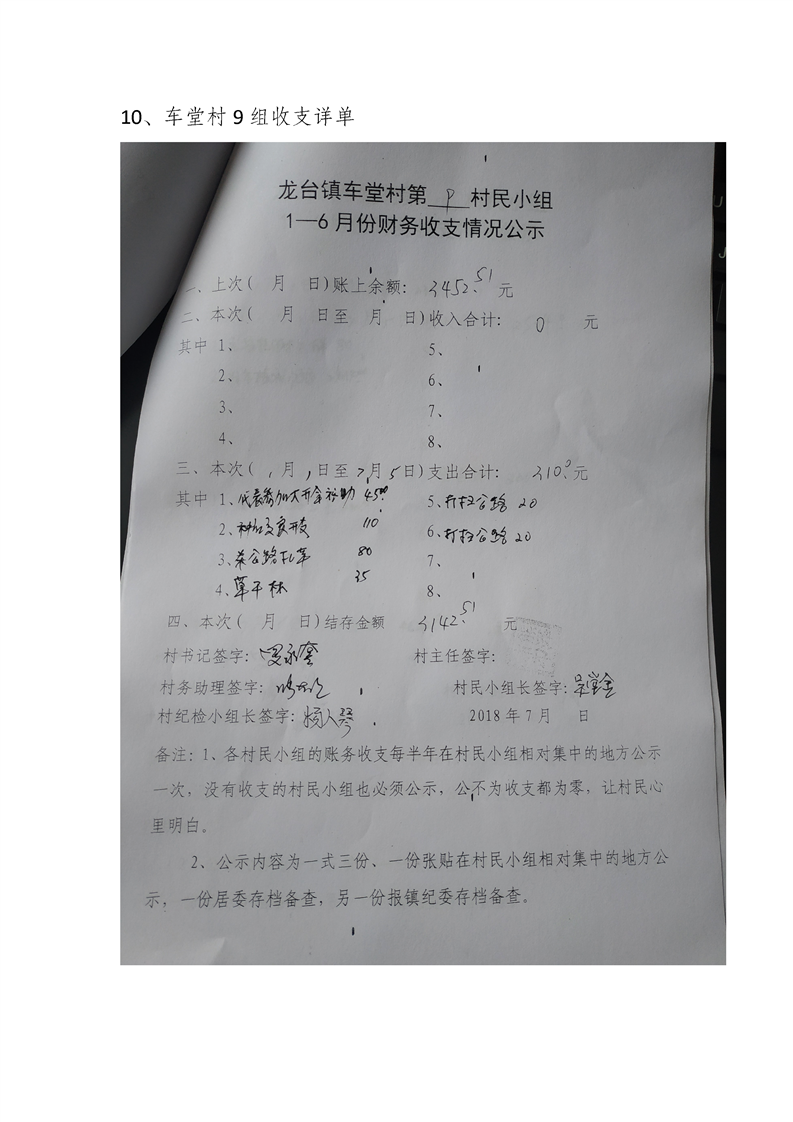 10、车堂村 9 组收支详单
龙台镇车堂村第 9 村民小组
1—6 月份财务收支情况公示
一、上次( 月 日)账上余额: 3452.51 元
二、本次( 月 日至 月 日)收入合计: 0 元
其中 1、 5、
2、 6、
3、 7、
4、 8、
三、本次( 1月1日至7月5日)支出合计: 310.0元
其中 1、代表参加大开会补助 45.00 5、打扫公路 20
2、 110 6、打扫公路 20
3、公路 80 7、
4、草干林 35 8、
四、本次( 月 日)结存金额 3142.51 元
村书记签字: 村主任签字:
村务助理签字: 村民小组长签字:
村纪检小组长签字: 2018 年 7 月 日
备注: 1、各村民小组的账务收支每半年在村民小组相对集中的地方公示
一次，没有收支的村民小组也必须公示，公不为收支都为零，让村民心
里明白。
2、公示内容为一式三份、一份张贴在村民小组相对集中的地方公
示，一份居委存档备查，另一份报镇纪委存档备查。